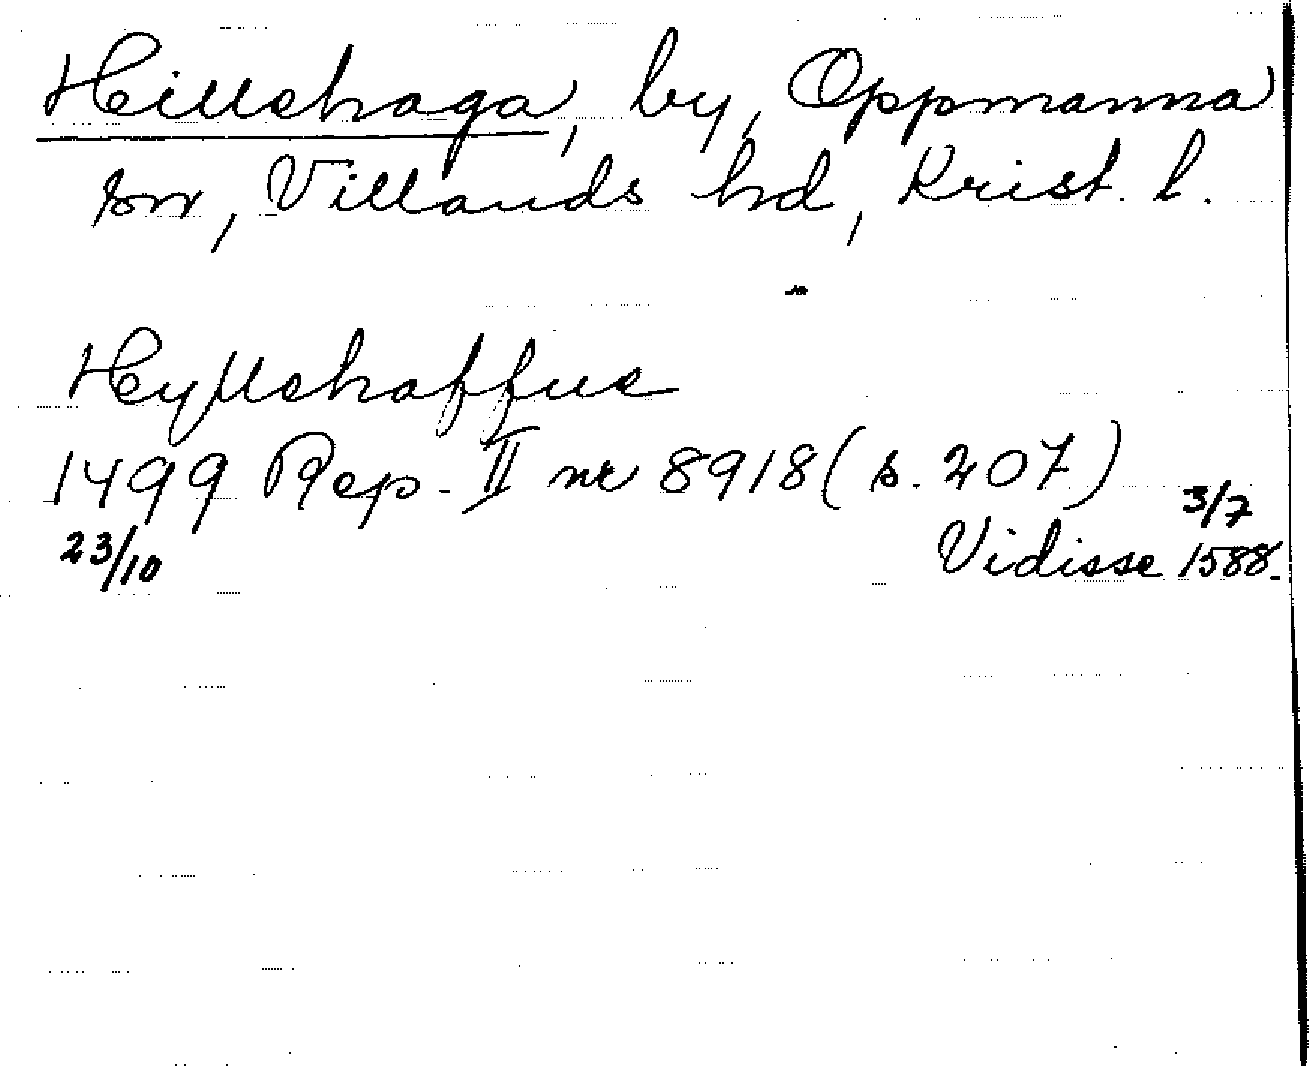 Hillshaga, by, Oppmanna
sn, Villands hd, Krist. l.
Hyllshaffue
1499 Rep. II nr 8918 (s. 207)
23/10
3/7
Vidisse 1588.